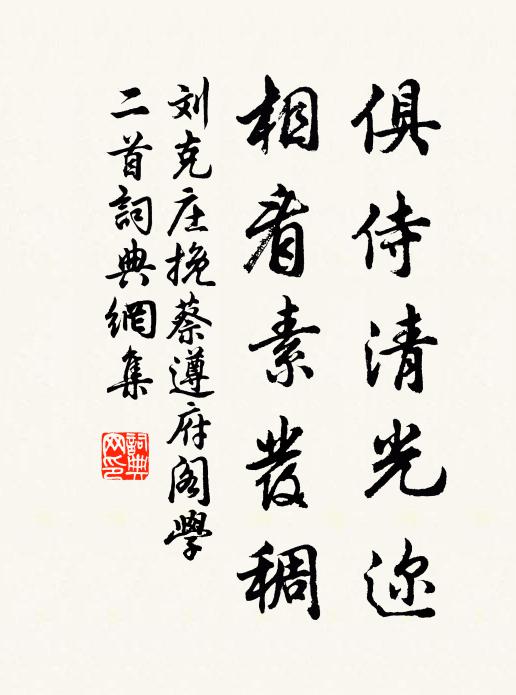 俱侍清光迩
相看素发稠
刘克庄挽蔡遵府阁学
二首词典網集
詞典网印